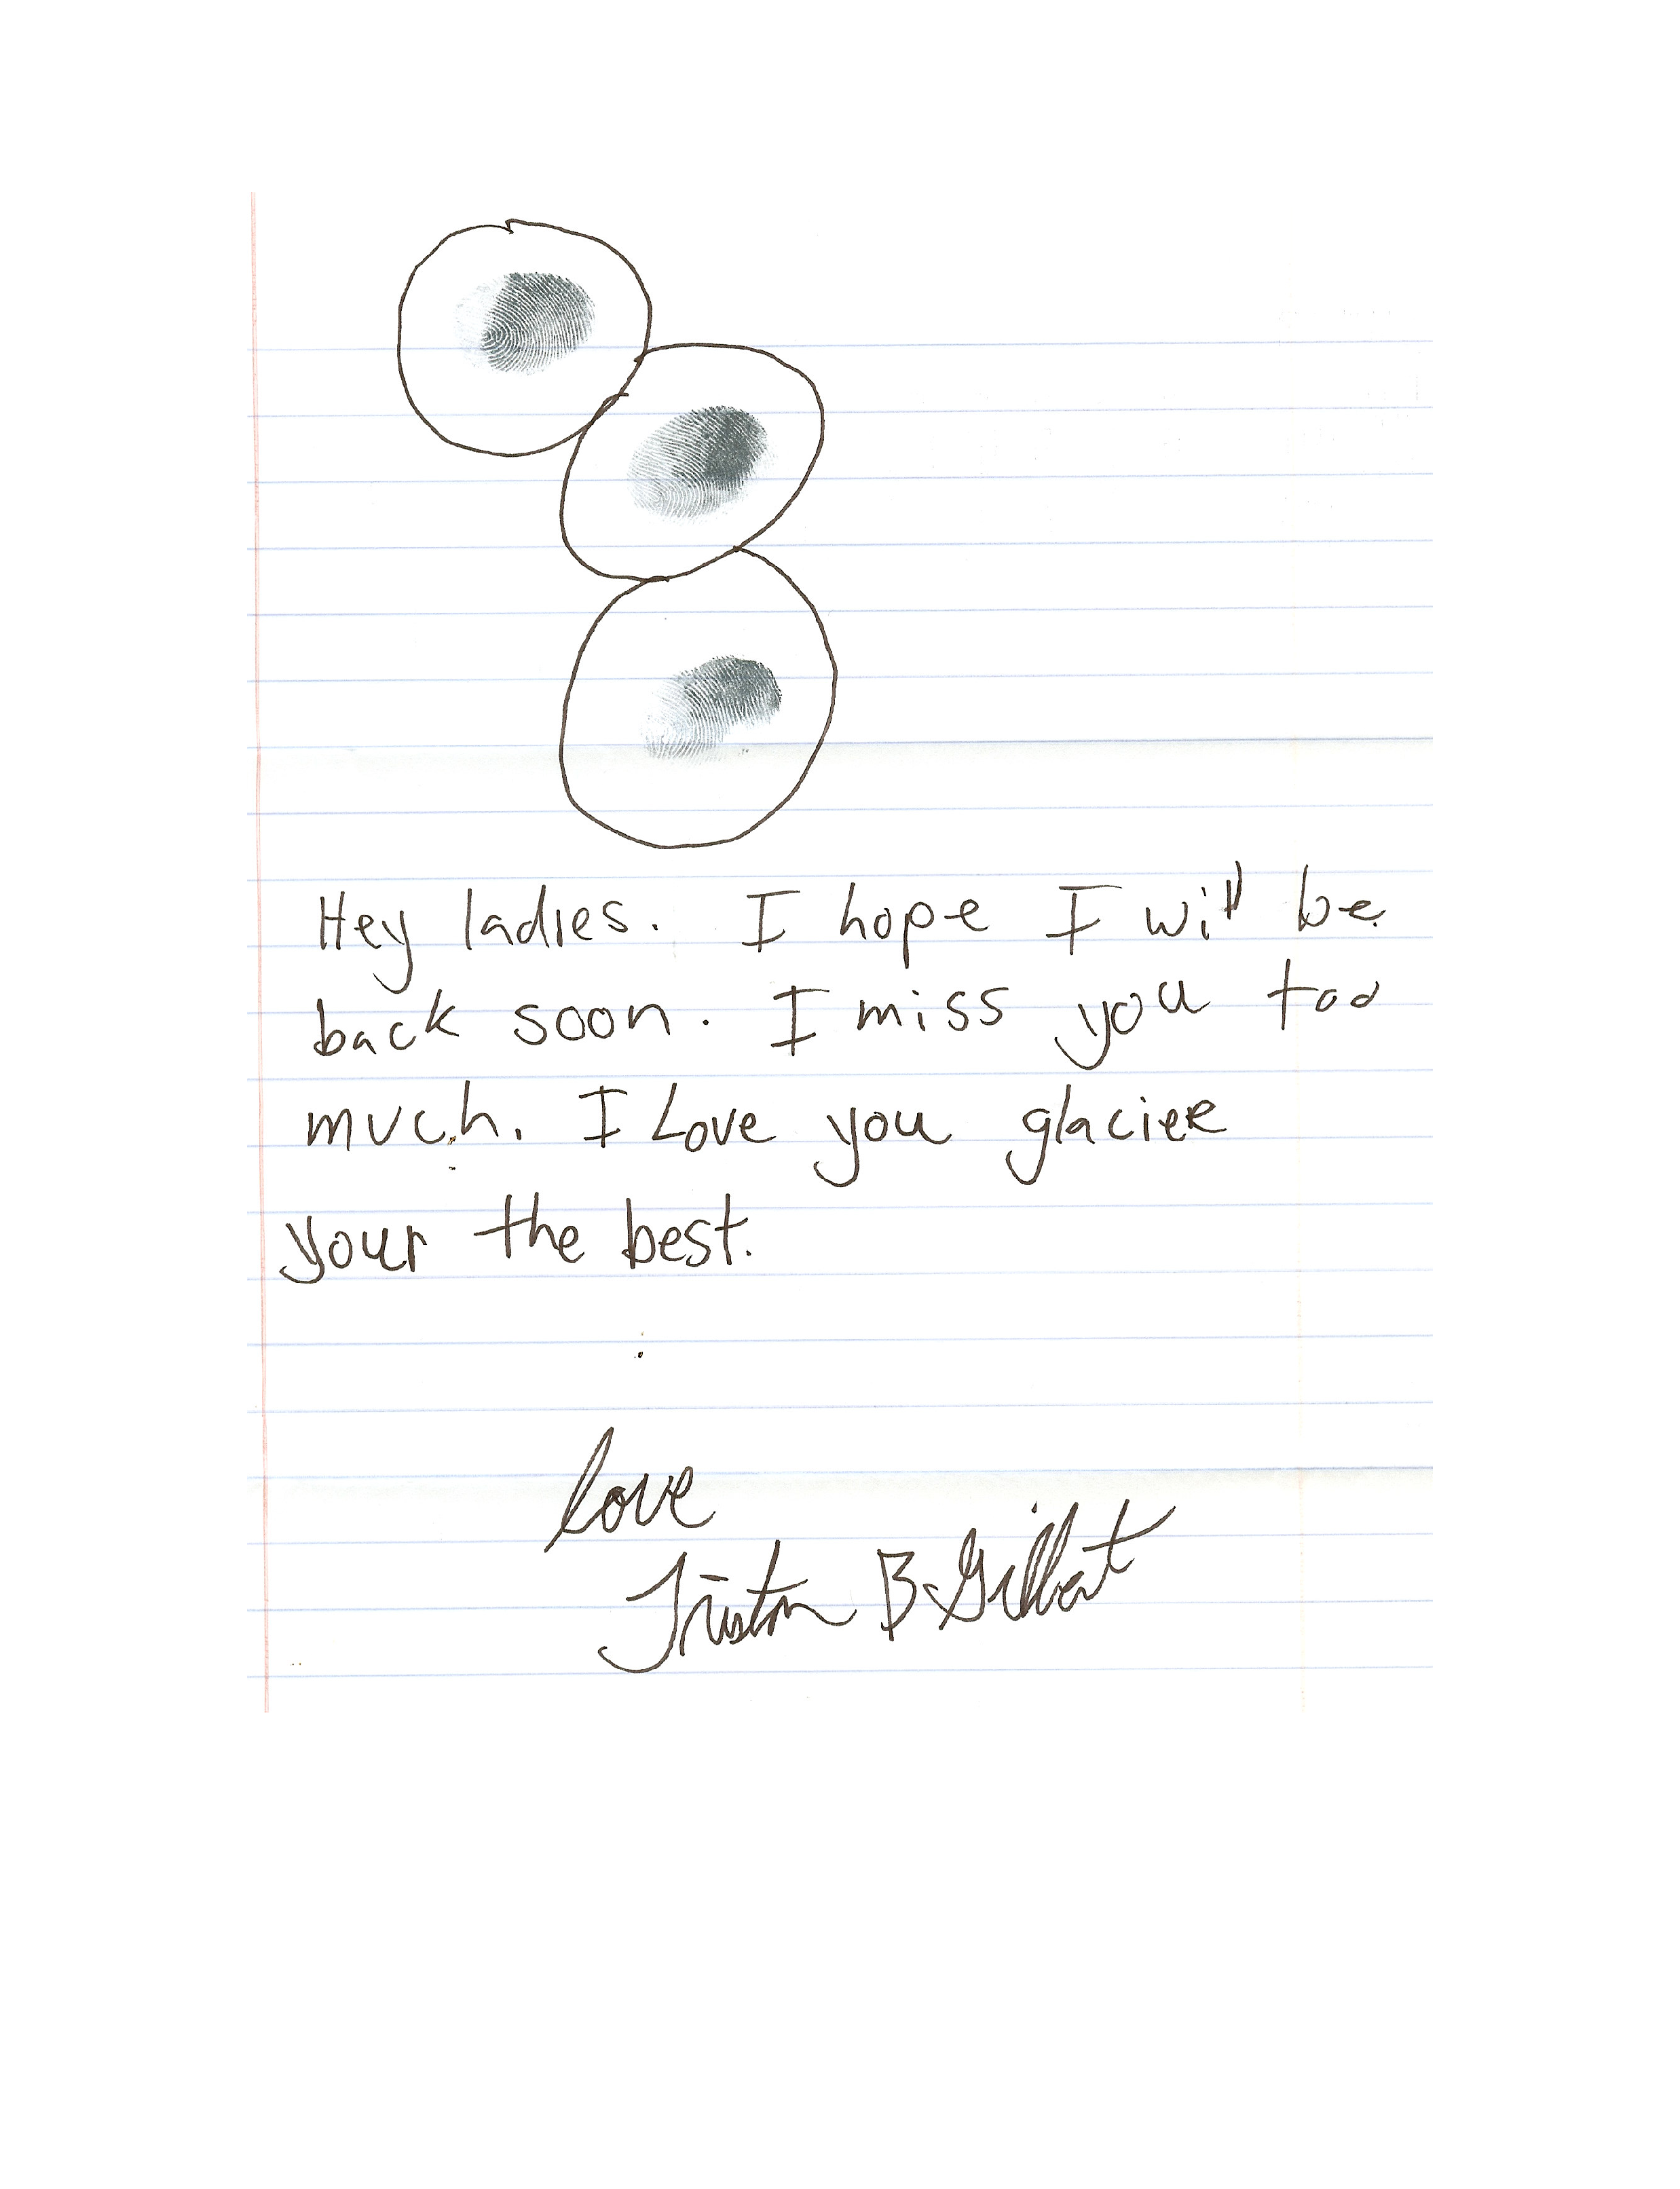 Hey ladies. I hope I will be
back soon. I miss you too
much. I Love you glacier
your the best.
love
Triston B. Gilbert